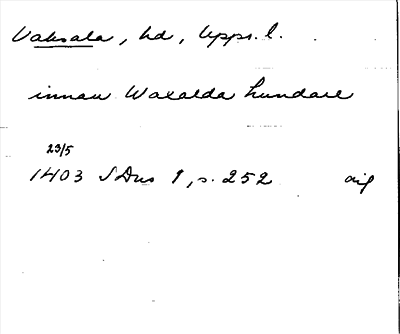 Vaksala, hd, Upps. l.
innan Waxalda hundare
23/5
1403 SDns 1, s. 252 oif